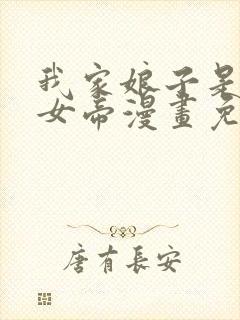 我家娘子是
女帝漫畫免
唐有長安